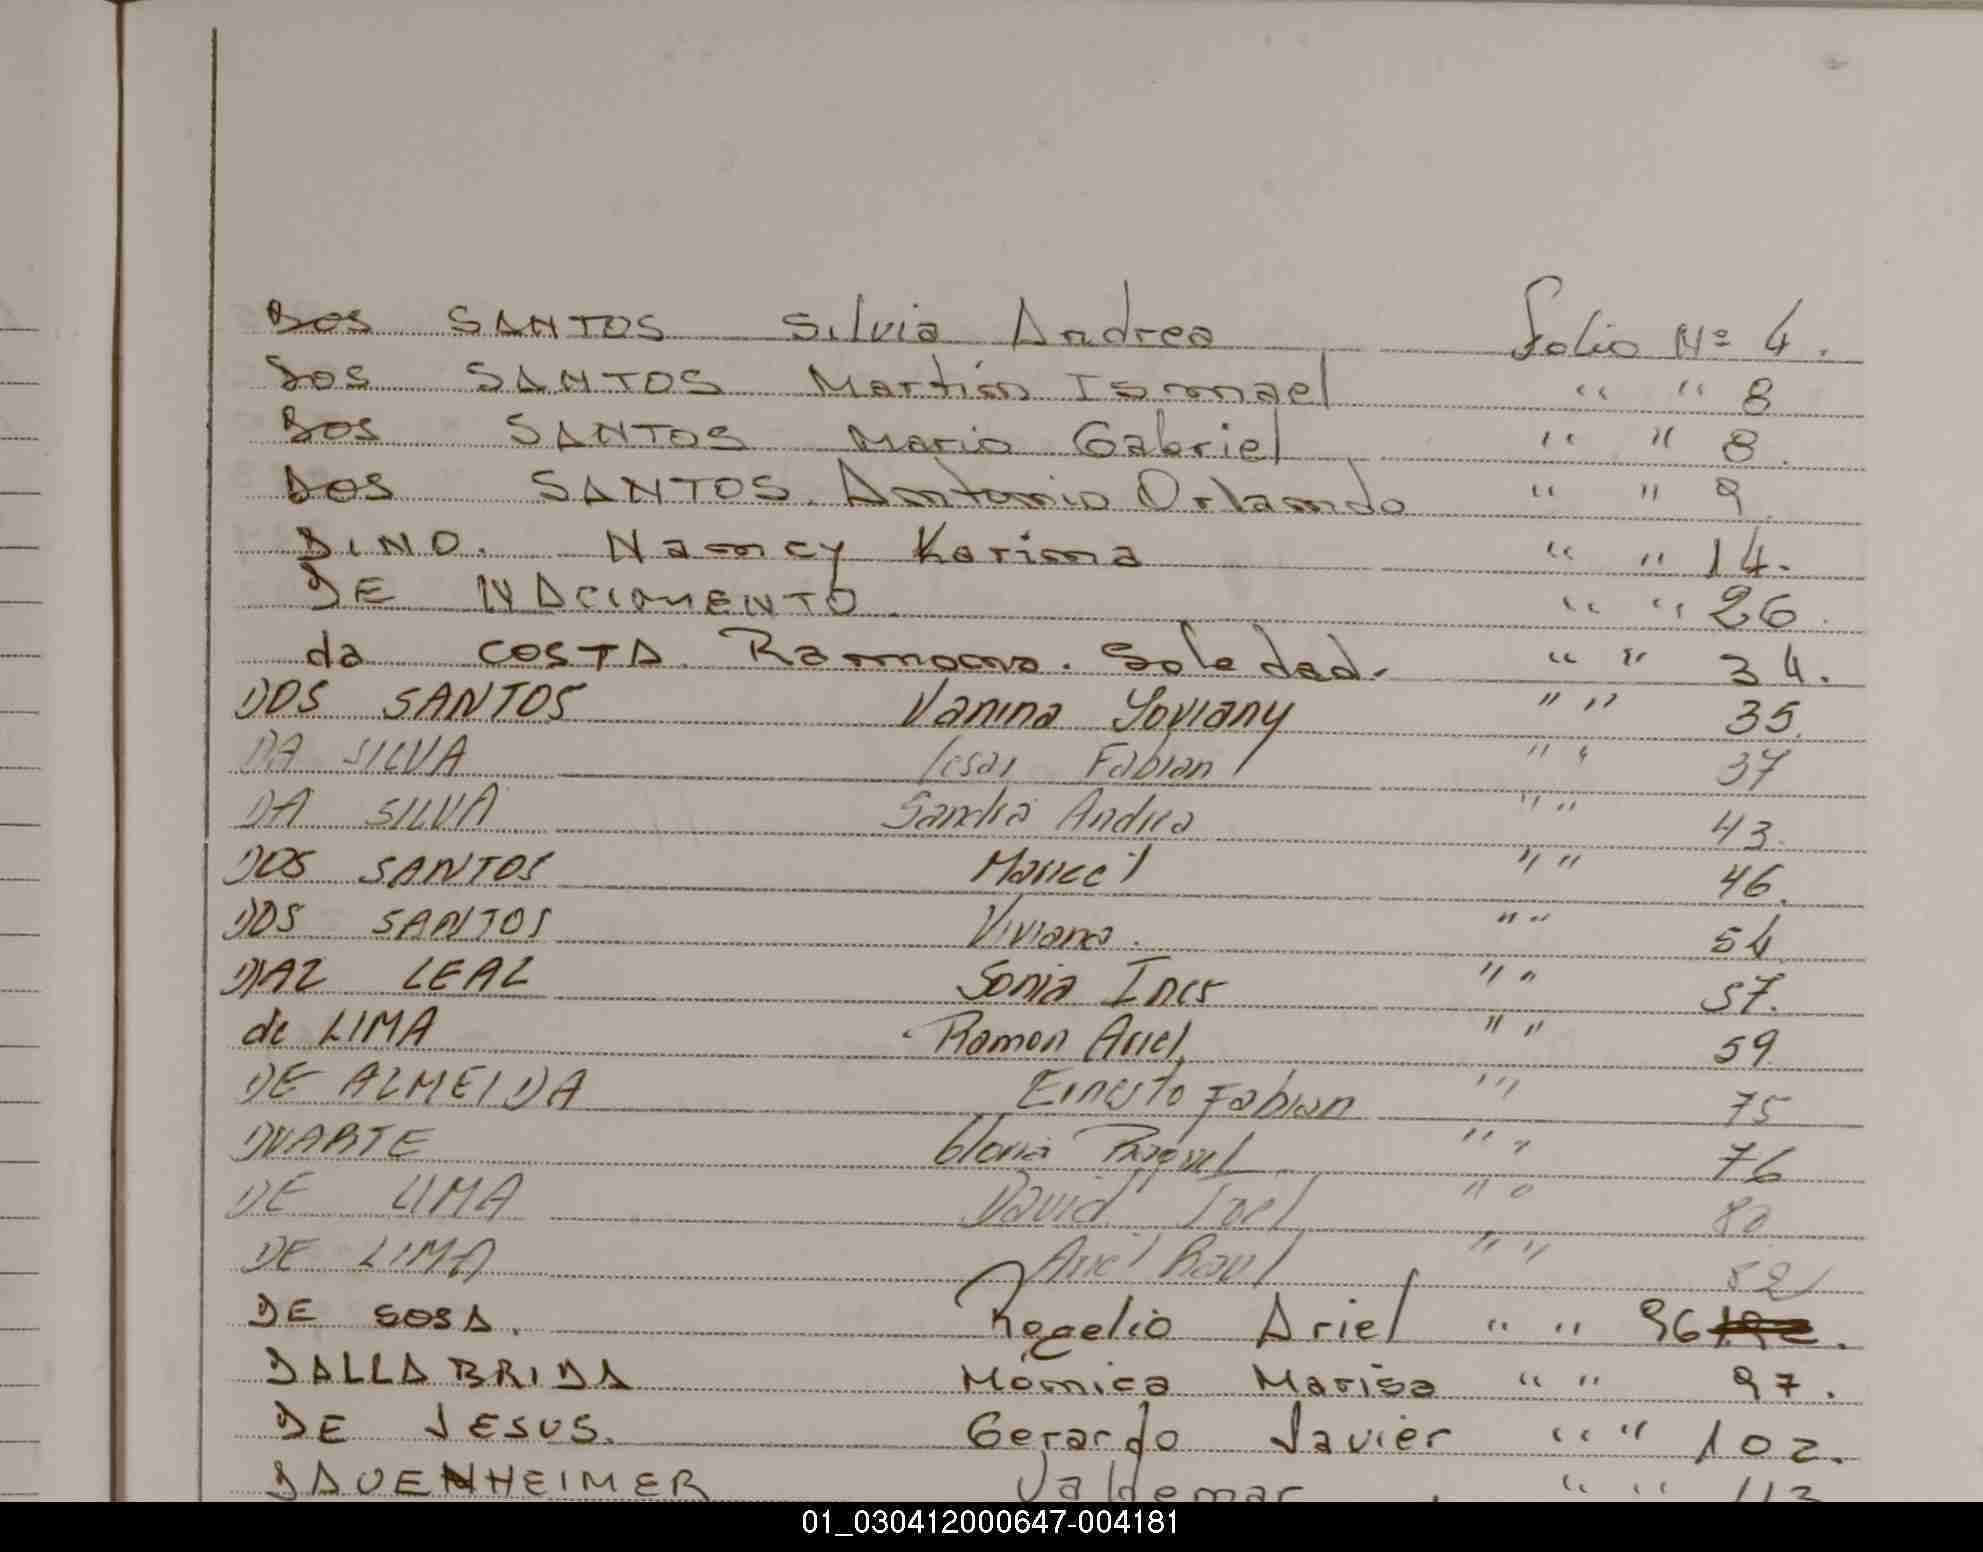 DOS SANTOS Silvia Andrea Folio Nº 4.
DOS SANTOS Martín Ismael " " 8
DOS SANTOS Mario Gabriel " " 8.
DOS SANTOS. Antonio Orlando " " 9
DINO. Nancy Karina " " 14.
DE NACIMENTO. " " 26.
da COSTA. Ramona. Soledad. " " 34.
DOS SANTOS Vanina Yoviany " " 35.
DA SILVA Cesar Fabian " " 37
DA SILVA Sandra Andrea " " 43.
DOS SANTOS Maricel " " 46.
DOS SANTOS Viviana. " " 54
DIAZ LEAL Sonia Ines " " 57.
de LIMA Ramon Ariel " " 59
DE ALMEIDA Ernesto Fabian " " 75
DUARTE Gloria Raquel " " 76
DE LIMA David Joel " " 80
DE LIMA Ariel Raul " " 82
DE SOSA. Rogelio Ariel " " 96
DALLA BRIDA Mónica Marisa " " 97.
DE JESUS. Gerardo Javier " " 102.
DAUENHEIMER Valdemar " " 113
01_030412000647-004181